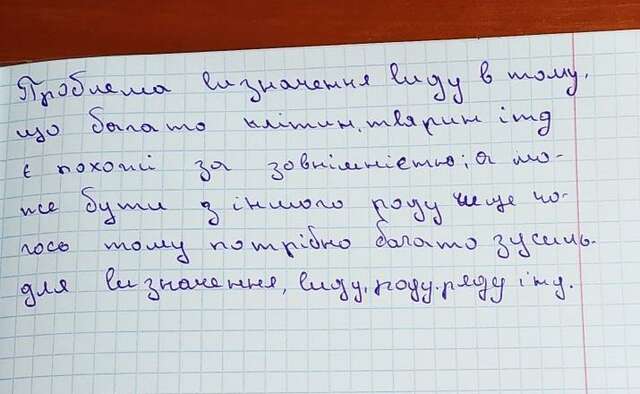 Проблема визначення виду в тому,
що багато клітин, тварин ітд
є похожі за зовнішністю, а мо-
же бути з іншого роду чи ще чо-
гось тому потрібно багато зусиль
для визначення, виду, роду, ряду і т.д.